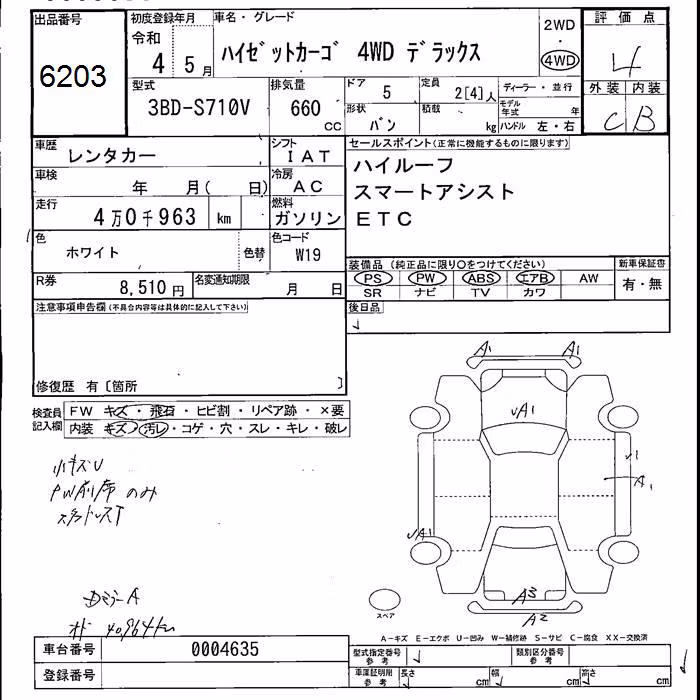 出品番号
6203
初度登録年月
令和
4 5月
車名・グレード
ハイゼットカーゴ 4WD デラックス
2WD
・
4WD
評価点
4
外装 内装
C B
型式
3BD-S710V
排気量
660
cc
ドア
5
形状
バン
定員
2[4]人
積載
kg
ディーラー・並行
モデル年式 年
ハンドル 左・右
車歴
レンタカー
シフト
IAT
車検
年 月( 日)
冷房
AC
走行
4万0千963 km
燃料
ガソリン
色
ホワイト
色替
色コード
W19
R券
8,510円
名変通知期限
月 日
セールスポイント(正常に機能するものに限ります)
ハイルーフ
スマートアシスト
ETC
装備品 (純正品に限り○をつけてください)
PS PW ABS エアB AW
SR ナビ TV カワ
新車保証書
有・無
注意事項申告欄(不具合内容等は具体的に記入して下さい)
修復歴 有〔箇所 〕
後日品
検査員記入欄
FW キズ・飛石・ヒビ割・リペア跡・×要
内装 キズ・汚レ・コゲ・穴・スレ・キレ・破レ
小キズU
PW前席のみ
スタッドレスT
DミラーA
オド 40,964km
A1 A1
UA1
U1
A1
UA1
A3
A2
スペア
A-キズ E-エクボ U-凹み W-補修跡 S-サビ C-腐食 XX-交換済
車台番号
0004635
登録番号
型式指定番号
参考
類別区分番号
参考
車庫証明用
参考
長さ cm
幅 cm
高さ cm